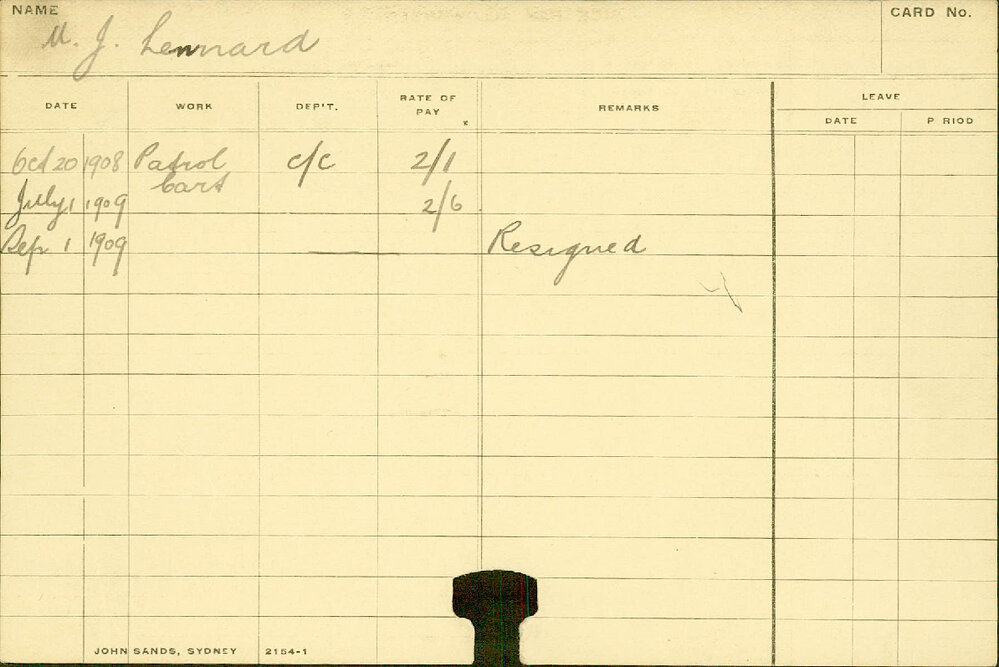 NAME
M. J. Lennard
CARD No.
DATE WORK DEP'T. RATE OF PAY REMARKS LEAVE
DATE P RIOD
Oct 20 1908 Patrol c/c 2/1
Cart
July 1 1909 2/6
Sep 1 1909 Resigned
JOHN SANDS, SYDNEY 2154-1